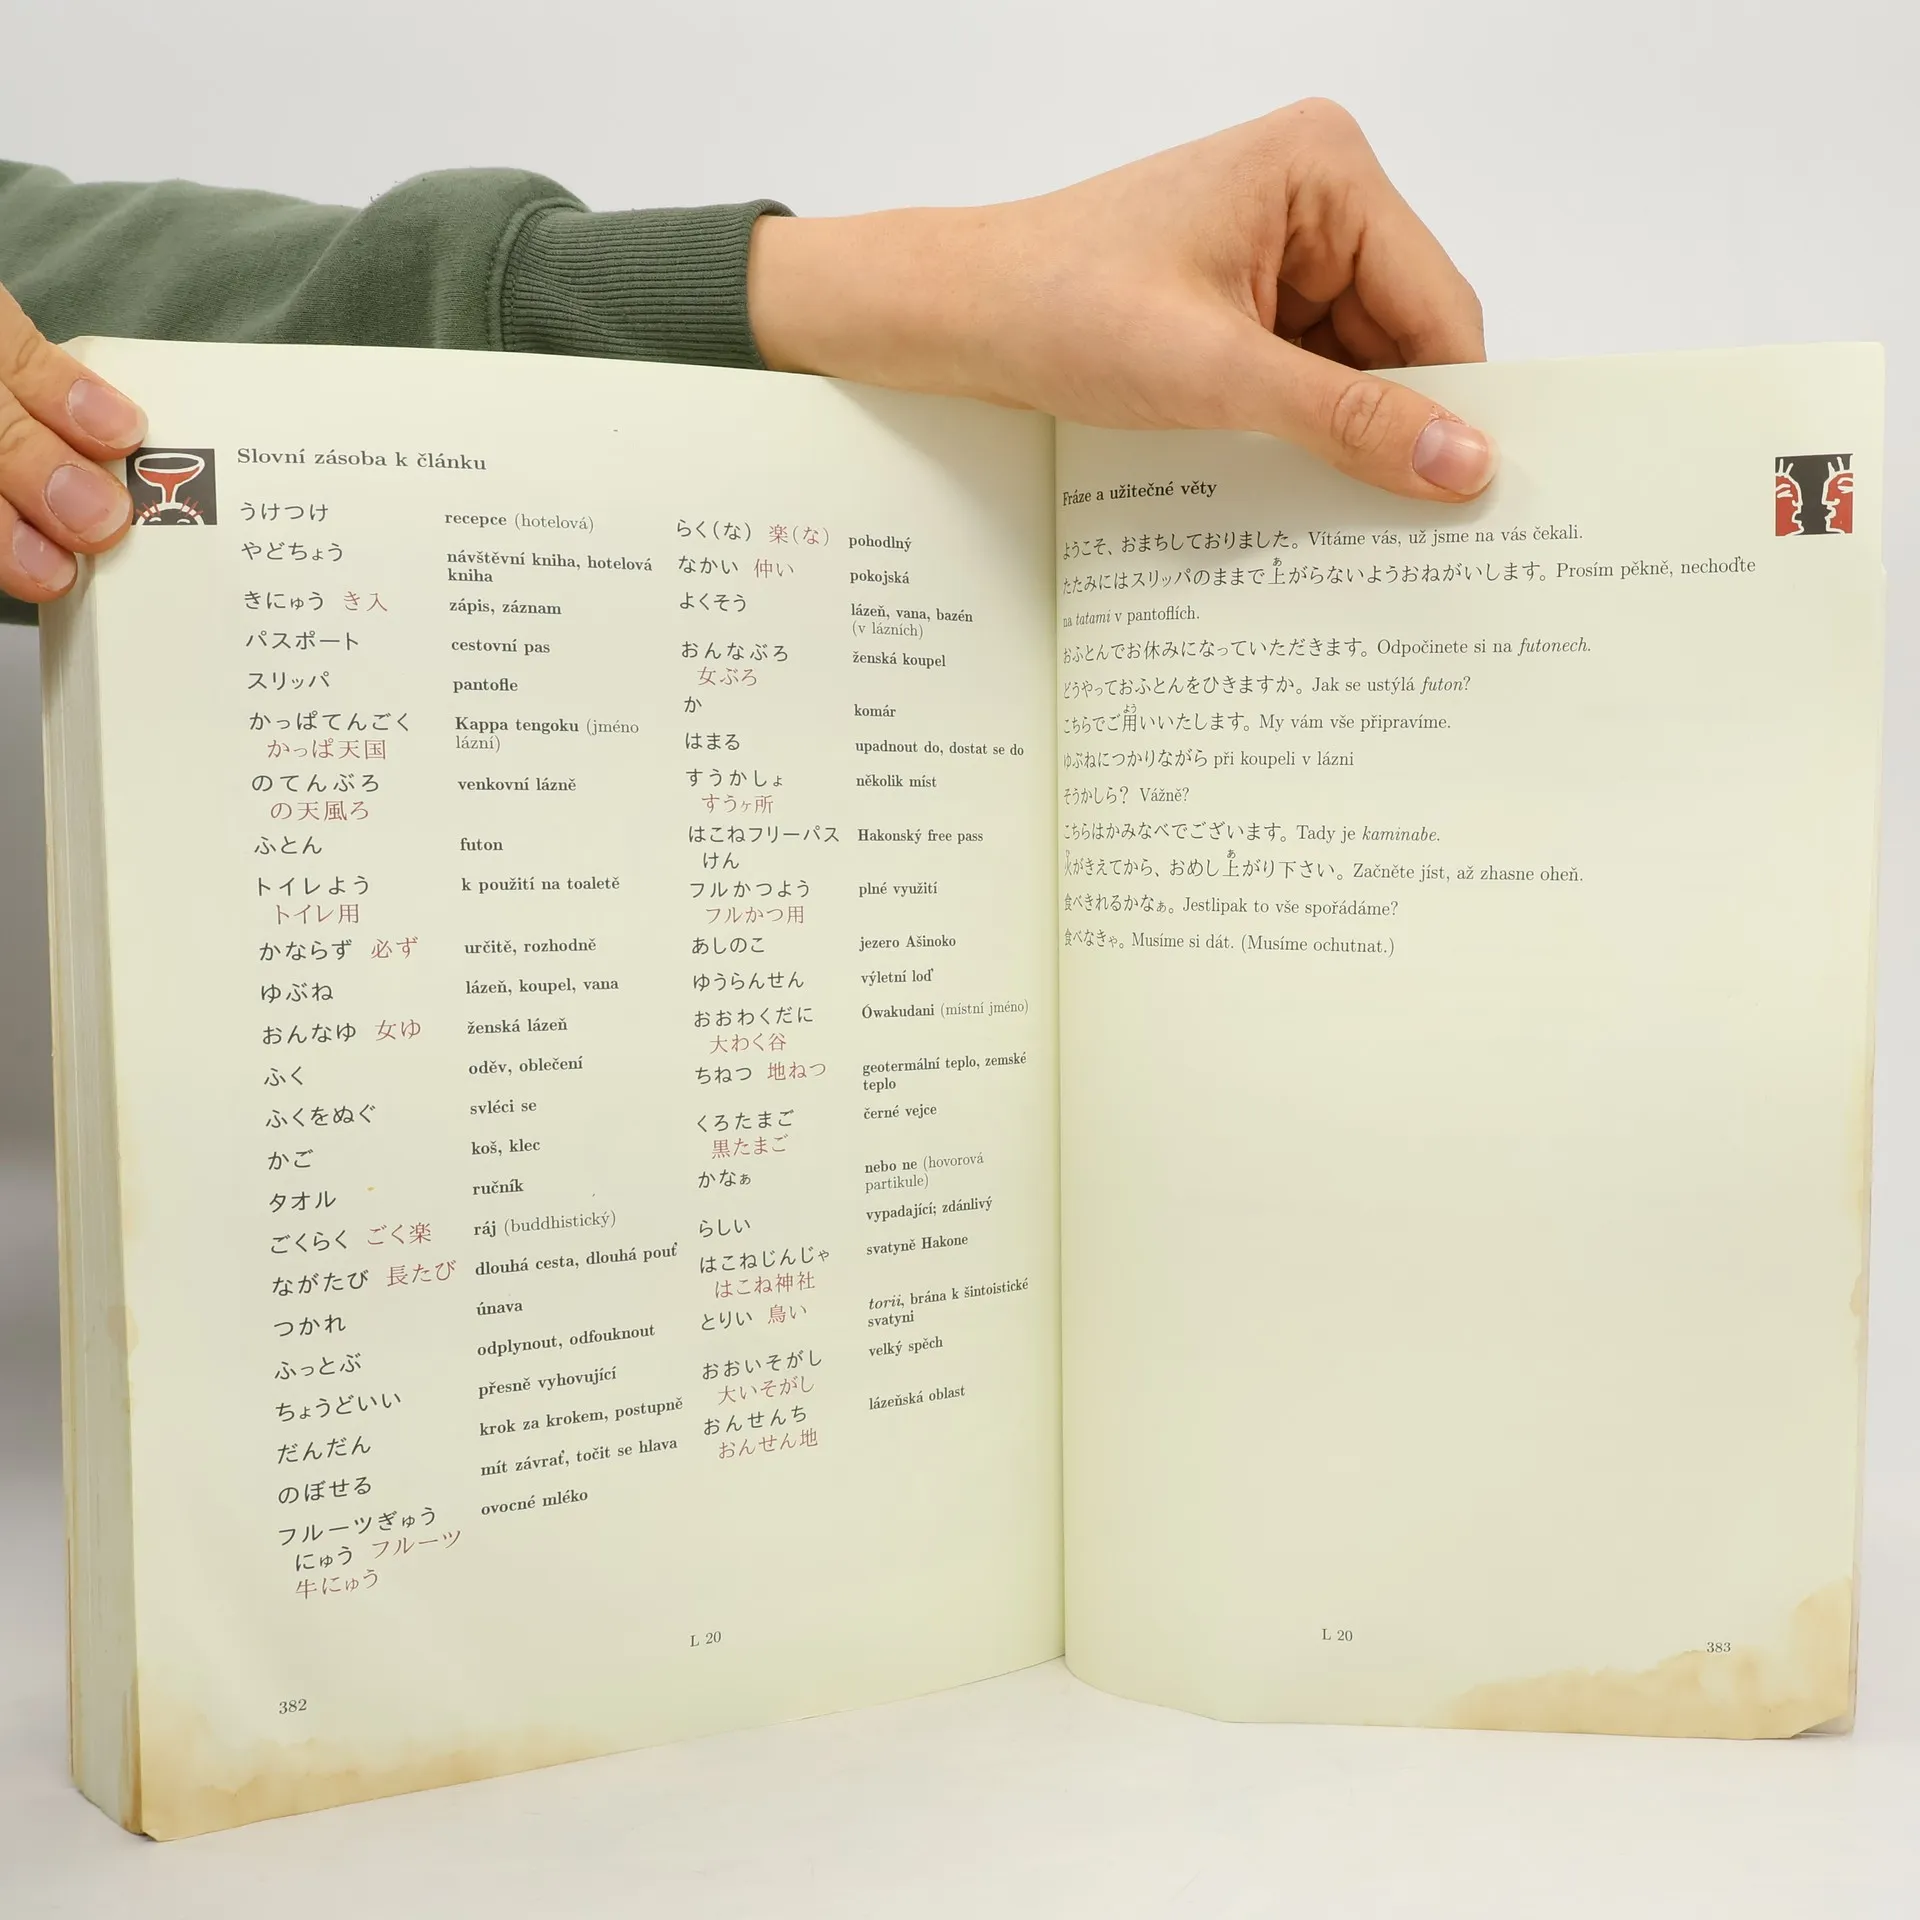 Slovní zásoba k článku
うけつけ recepce (hotelová)
やどちょう návštěvní kniha, hotelová
kniha
きにゅう き入 zápis, záznam
パスポート cestovní pas
スリッパ pantofle
かっぱてんごく Kappa tengoku (jméno
かっぱ天国 lázní)
のてんぶろ venkovní lázně
の天風ろ
ふとん futon
トイレよう k použití na toaletě
トイレ用
かならず 必ず určitě, rozhodně
ゆぶね lázeň, koupel, vana
おんなゆ 女ゆ ženská lázeň
ふく oděv, oblečení
ふくをぬぐ svléci se
かご koš, klec
タオル ručník
ごくらく ごく楽 ráj (buddhistický)
ながたび 長たび dlouhá cesta, dlouhá pouť
つかれ únava
ふっとぶ odplynout, odfouknout
ちょうどいい přesně vyhovující
だんだん krok za krokem, postupně
のぼせる mít závrať, točit se hlava
フルーツぎゅう ovocné mléko
にゅう フルーツ
牛にゅう
らく(な) 楽(な) pohodlný
なかい 仲い pokojská
よくそう lázeň, vana, bazén
(v lázních)
おんなぶろ ženská koupel
女ぶろ
か komár
はまる upadnout do, dostat se do
すうかしょ několik míst
すうヶ所
はこねフリーパス Hakonský free pass
けん
フルかつよう plné využití
フルかつ用
あしのこ jezero Ašinoko
ゆうらんせん výletní loď
おおわくだに Ówakudani (místní jméno)
大わく谷
ちねつ 地ねつ geotermální teplo, zemské
teplo
くろたまご černé vejce
黒たまご
かなぁ nebo ne (hovorová
partikule)
らしい vypadající; zdánlivý
はこねじんじゃ svatyně Hakone
はこね神社
とりい 鳥い torii, brána k šintoistické
svatyni
おおいそがし velký spěch
大いそがし
おんせんち lázeňská oblast
おんせん地
L 20
382
Fráze a užitečné věty
ようこそ、おまちしておりました。Vítáme vás, už jsme na vás čekali.
あ
たたみにはスリッパのままで上がらないようおねがいします。Prosím pěkně, nechoďte
na tatami v pantoflích.
おふとんでお休みになっていただきます。Odpočinete si na futonech.
どうやっておふとんをひきますか。Jak se ustýlá futon?
よう
こちらでご用いいたします。My vám vše připravíme.
ゆぶねにつかりながら při koupeli v lázni
そうかしら？ Vážně?
こちらはかみなべでございます。Tady je kaminabe.
ひ あ
火がきえてから、おめし上がり下さい。Začněte jíst, až zhasne oheň.
食べきれるかなぁ。Jestlipak to vše spořádáme?
食べなきゃ。Musíme si dát. (Musíme ochutnat.)
L 20
383